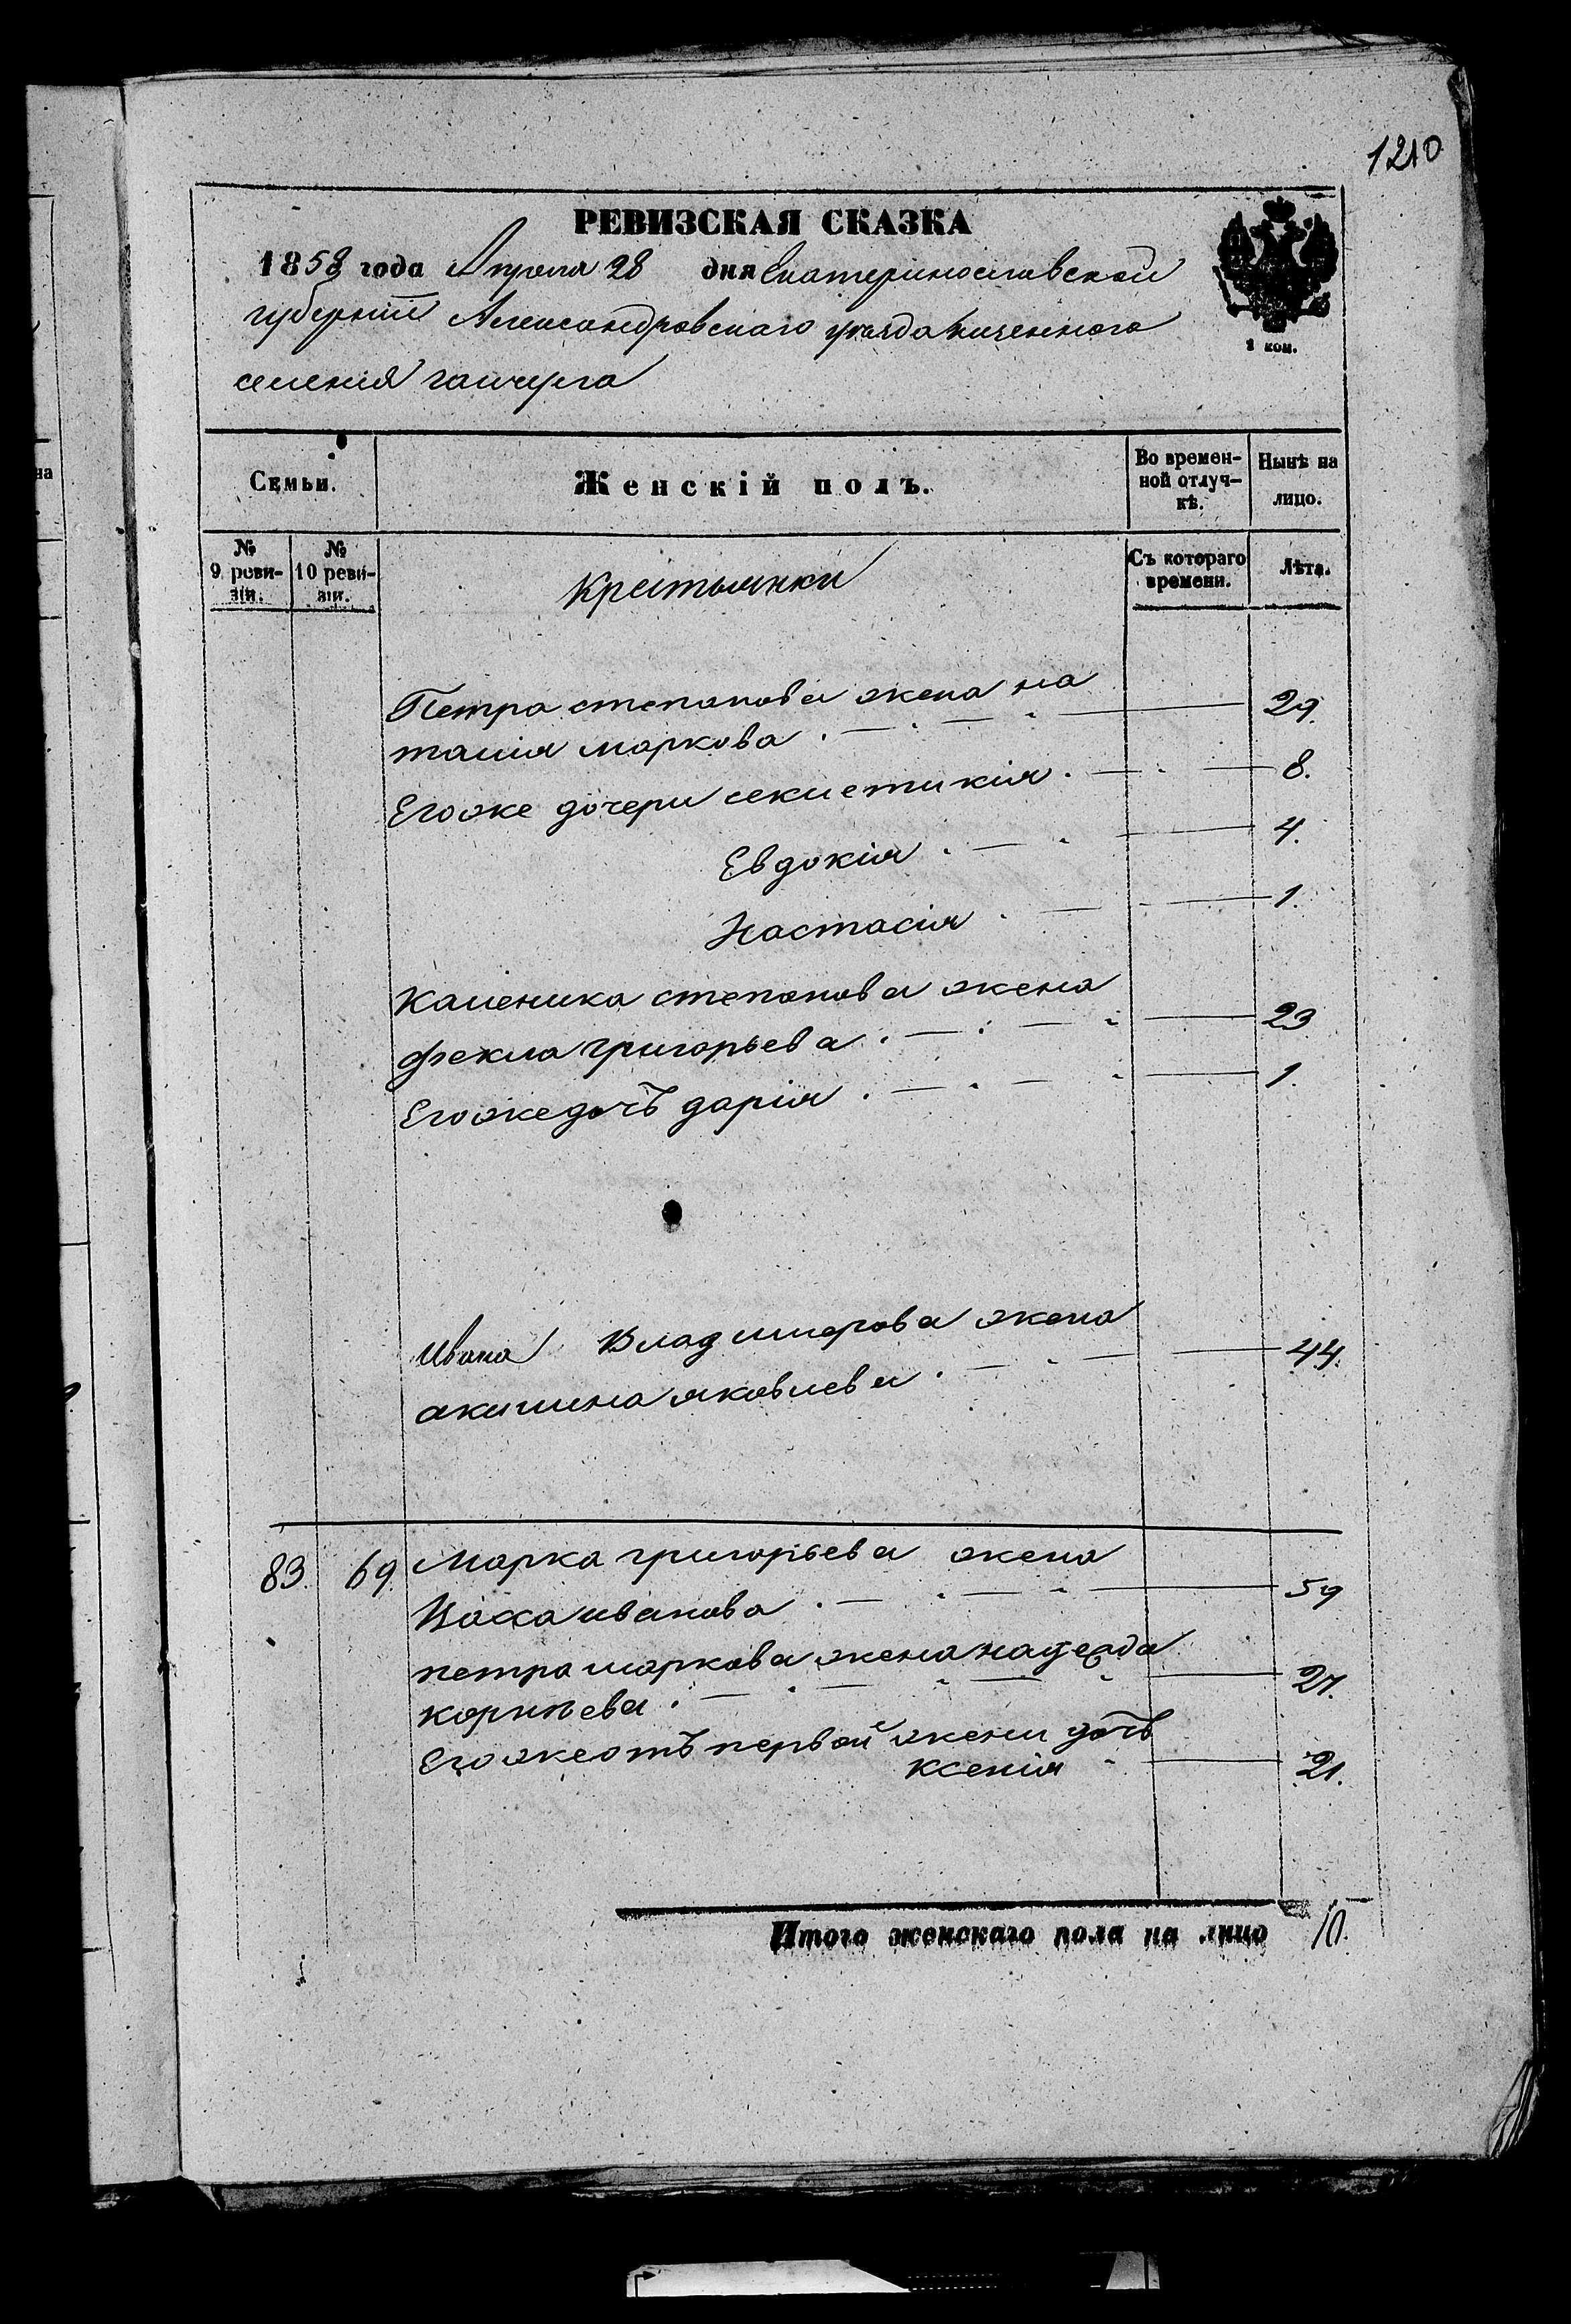 1210
РЕВИЗСКАЯ СКАЗКА
1858 года Апреля 28 дня Екатеринославской
губернiи Александровскаго уезда казенного
селения гайчула
2 коп.
Семьи.
Женскiй полъ.
Во времен-
ной отлуч-
кѣ.
Нынѣ на
лицо.
№
9 реви-
зiи.
№
10 реви-
зiи.
Крестьянки
Съ котораго
времени.
Лѣта.
Петра степанова жена на
талiя маркова 29.
Егоже дочери 8.
Евдокiя 4.
Настасiя 1.
степанова жена
фекла григорьева 23
Егоже дочъ дарiя 1.
Ивана Владимерова жена
акилина яковлева 44.
83. 69. Марка григорьева жена
Васса иванова 59
петра маркова жена надежда
корнѣева 27.
Егоже отъ первой жени дочъ
Ксенiя 21.
Итого женскаго пола на лицо 10.
на